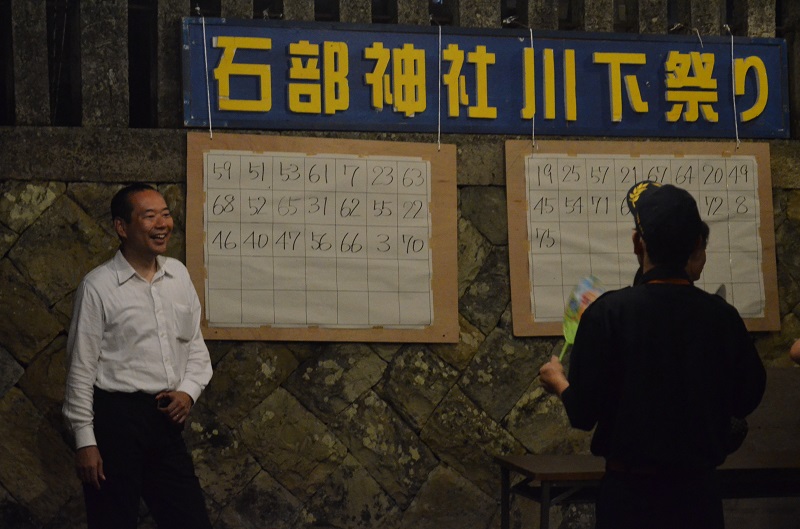 石部神社川下祭り
59 51 53 61 7 23 63
68 52 65 31 62 55 22
46 40 47 56 66 3 70
19 25 57 21 67 64 20 49
45 54 71 72 8
73